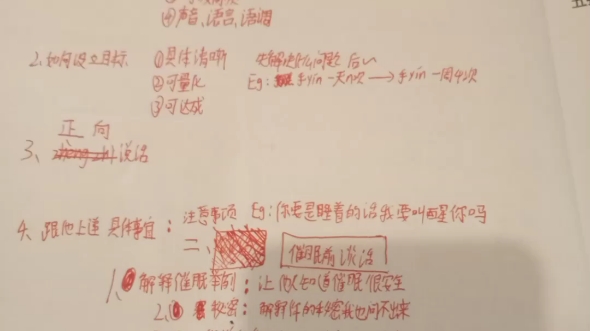 ④声音、语言、语调
2、如何设立目标 ①具体清晰 先解决什么问题 后
②可量化 Eg: 手yin 一天n次 → 手yin 一周4次
③可达成
正向
3、说话
4、跟他上述具体事宜: 注意事项 Eg: 你要是睡着的话我要叫醒你吗
二、 催眠前谈话
1、解释催眠 : 让他知道催眠很安全
2、秘密: 解释你的秘密我也问不出来